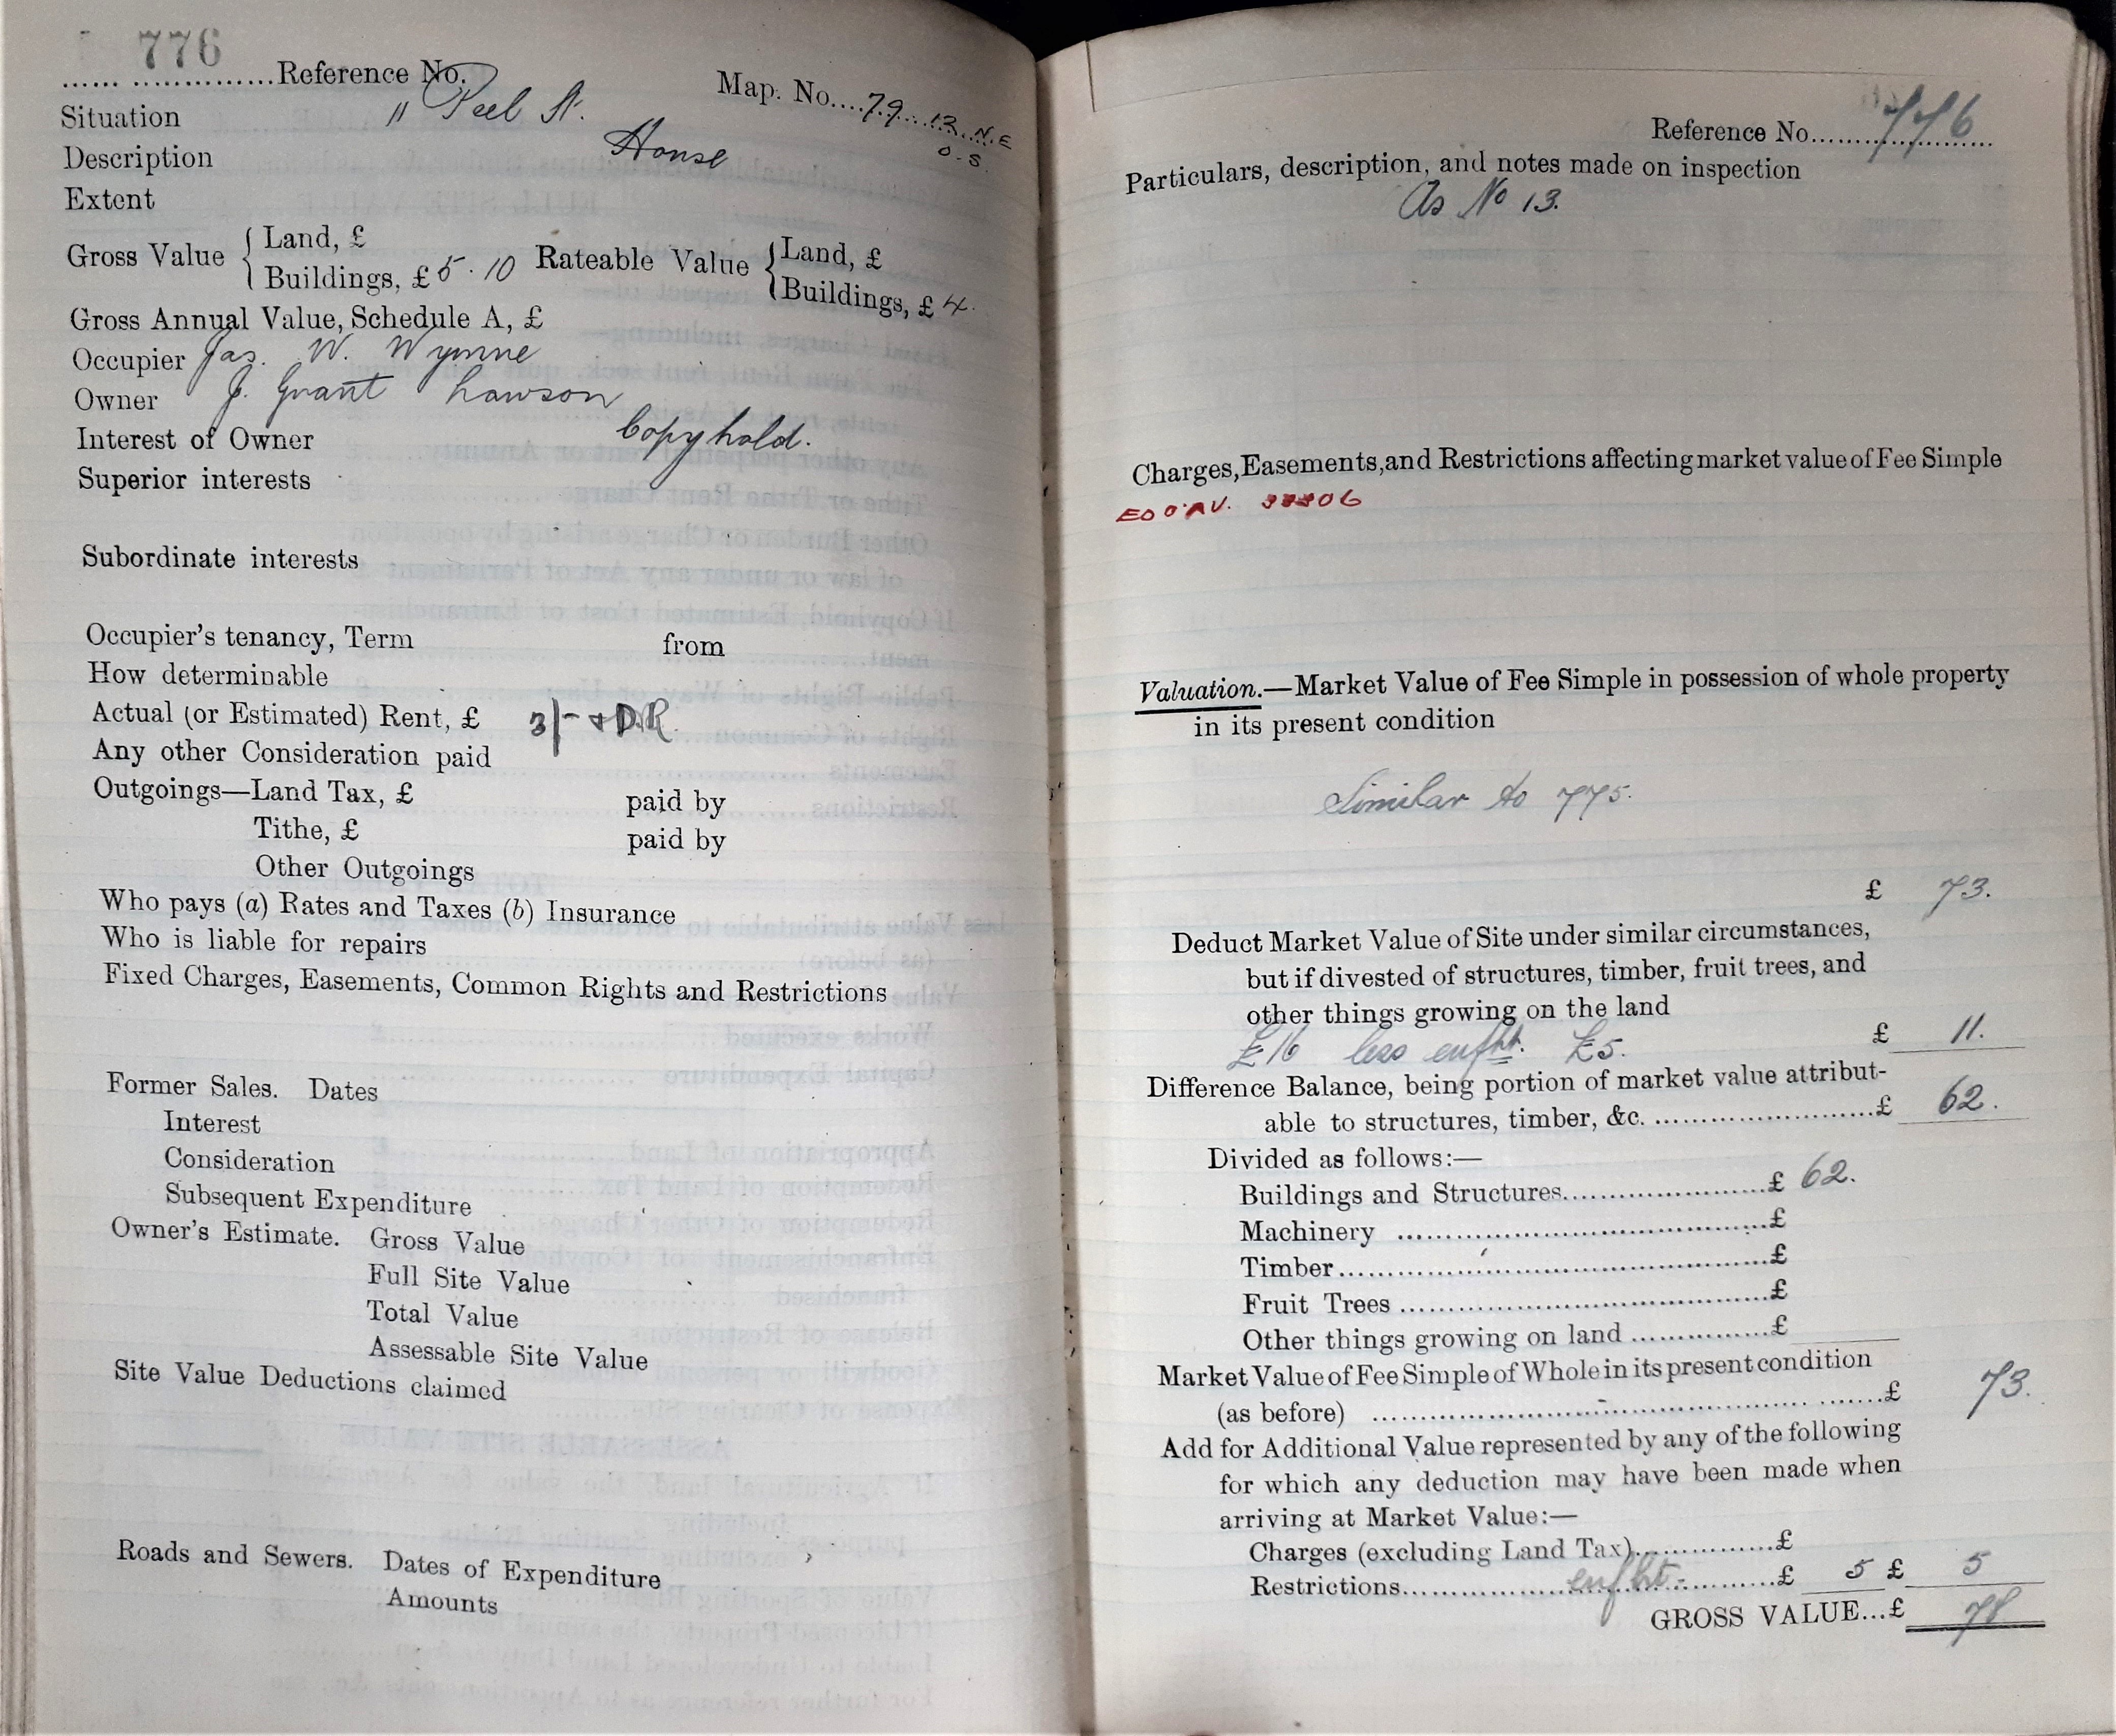 776
Reference No. Map. No. 79. 13. N.E
O.S.
Situation 11 Peel St.
Description House
Extent
Gross Value { Land, £
Buildings, £ 5.10
Rateable Value { Land, £
Buildings, £ 4.
Gross Annual Value, Schedule A, £
Occupier Jas. W. Wynne
Owner J. Grant Lawson
Interest of Owner Copyhold.
Superior interests
Subordinate interests
Occupier's tenancy, Term from
How determinable
Actual (or Estimated) Rent, £ 3/- + D.R.
Any other Consideration paid
Outgoings—Land Tax, £ paid by
Tithe, £ paid by
Other Outgoings
Who pays (a) Rates and Taxes (b) Insurance
Who is liable for repairs
Fixed Charges, Easements, Common Rights and Restrictions
Former Sales. Dates
Interest
Consideration
Subsequent Expenditure
Owner's Estimate. Gross Value
Full Site Value
Total Value
Assessable Site Value
Site Value Deductions claimed
Roads and Sewers. Dates of Expenditure
Amounts
Reference No. 776
Particulars, description, and notes made on inspection
As No 13.
Charges, Easements, and Restrictions affecting market value of Fee Simple
Valuation.—Market Value of Fee Simple in possession of whole property
in its present condition
Similar to 775.
£ 73.
Deduct Market Value of Site under similar circumstances,
but if divested of structures, timber, fruit trees, and
other things growing on the land
£16 less enfht. £5. £ 11.
Difference Balance, being portion of market value attribut-
able to structures, timber, &c. £ 62.
Divided as follows:—
Buildings and Structures £ 62.
Machinery £
Timber £
Fruit Trees £
Other things growing on land £
Market Value of Fee Simple of Whole in its present condition
(as before) £ 73.
Add for Additional Value represented by any of the following
for which any deduction may have been made when
arriving at Market Value:—
Charges (excluding Land Tax) £
Restrictions enfht. £ 5 £ 5
GROSS VALUE...£ 78